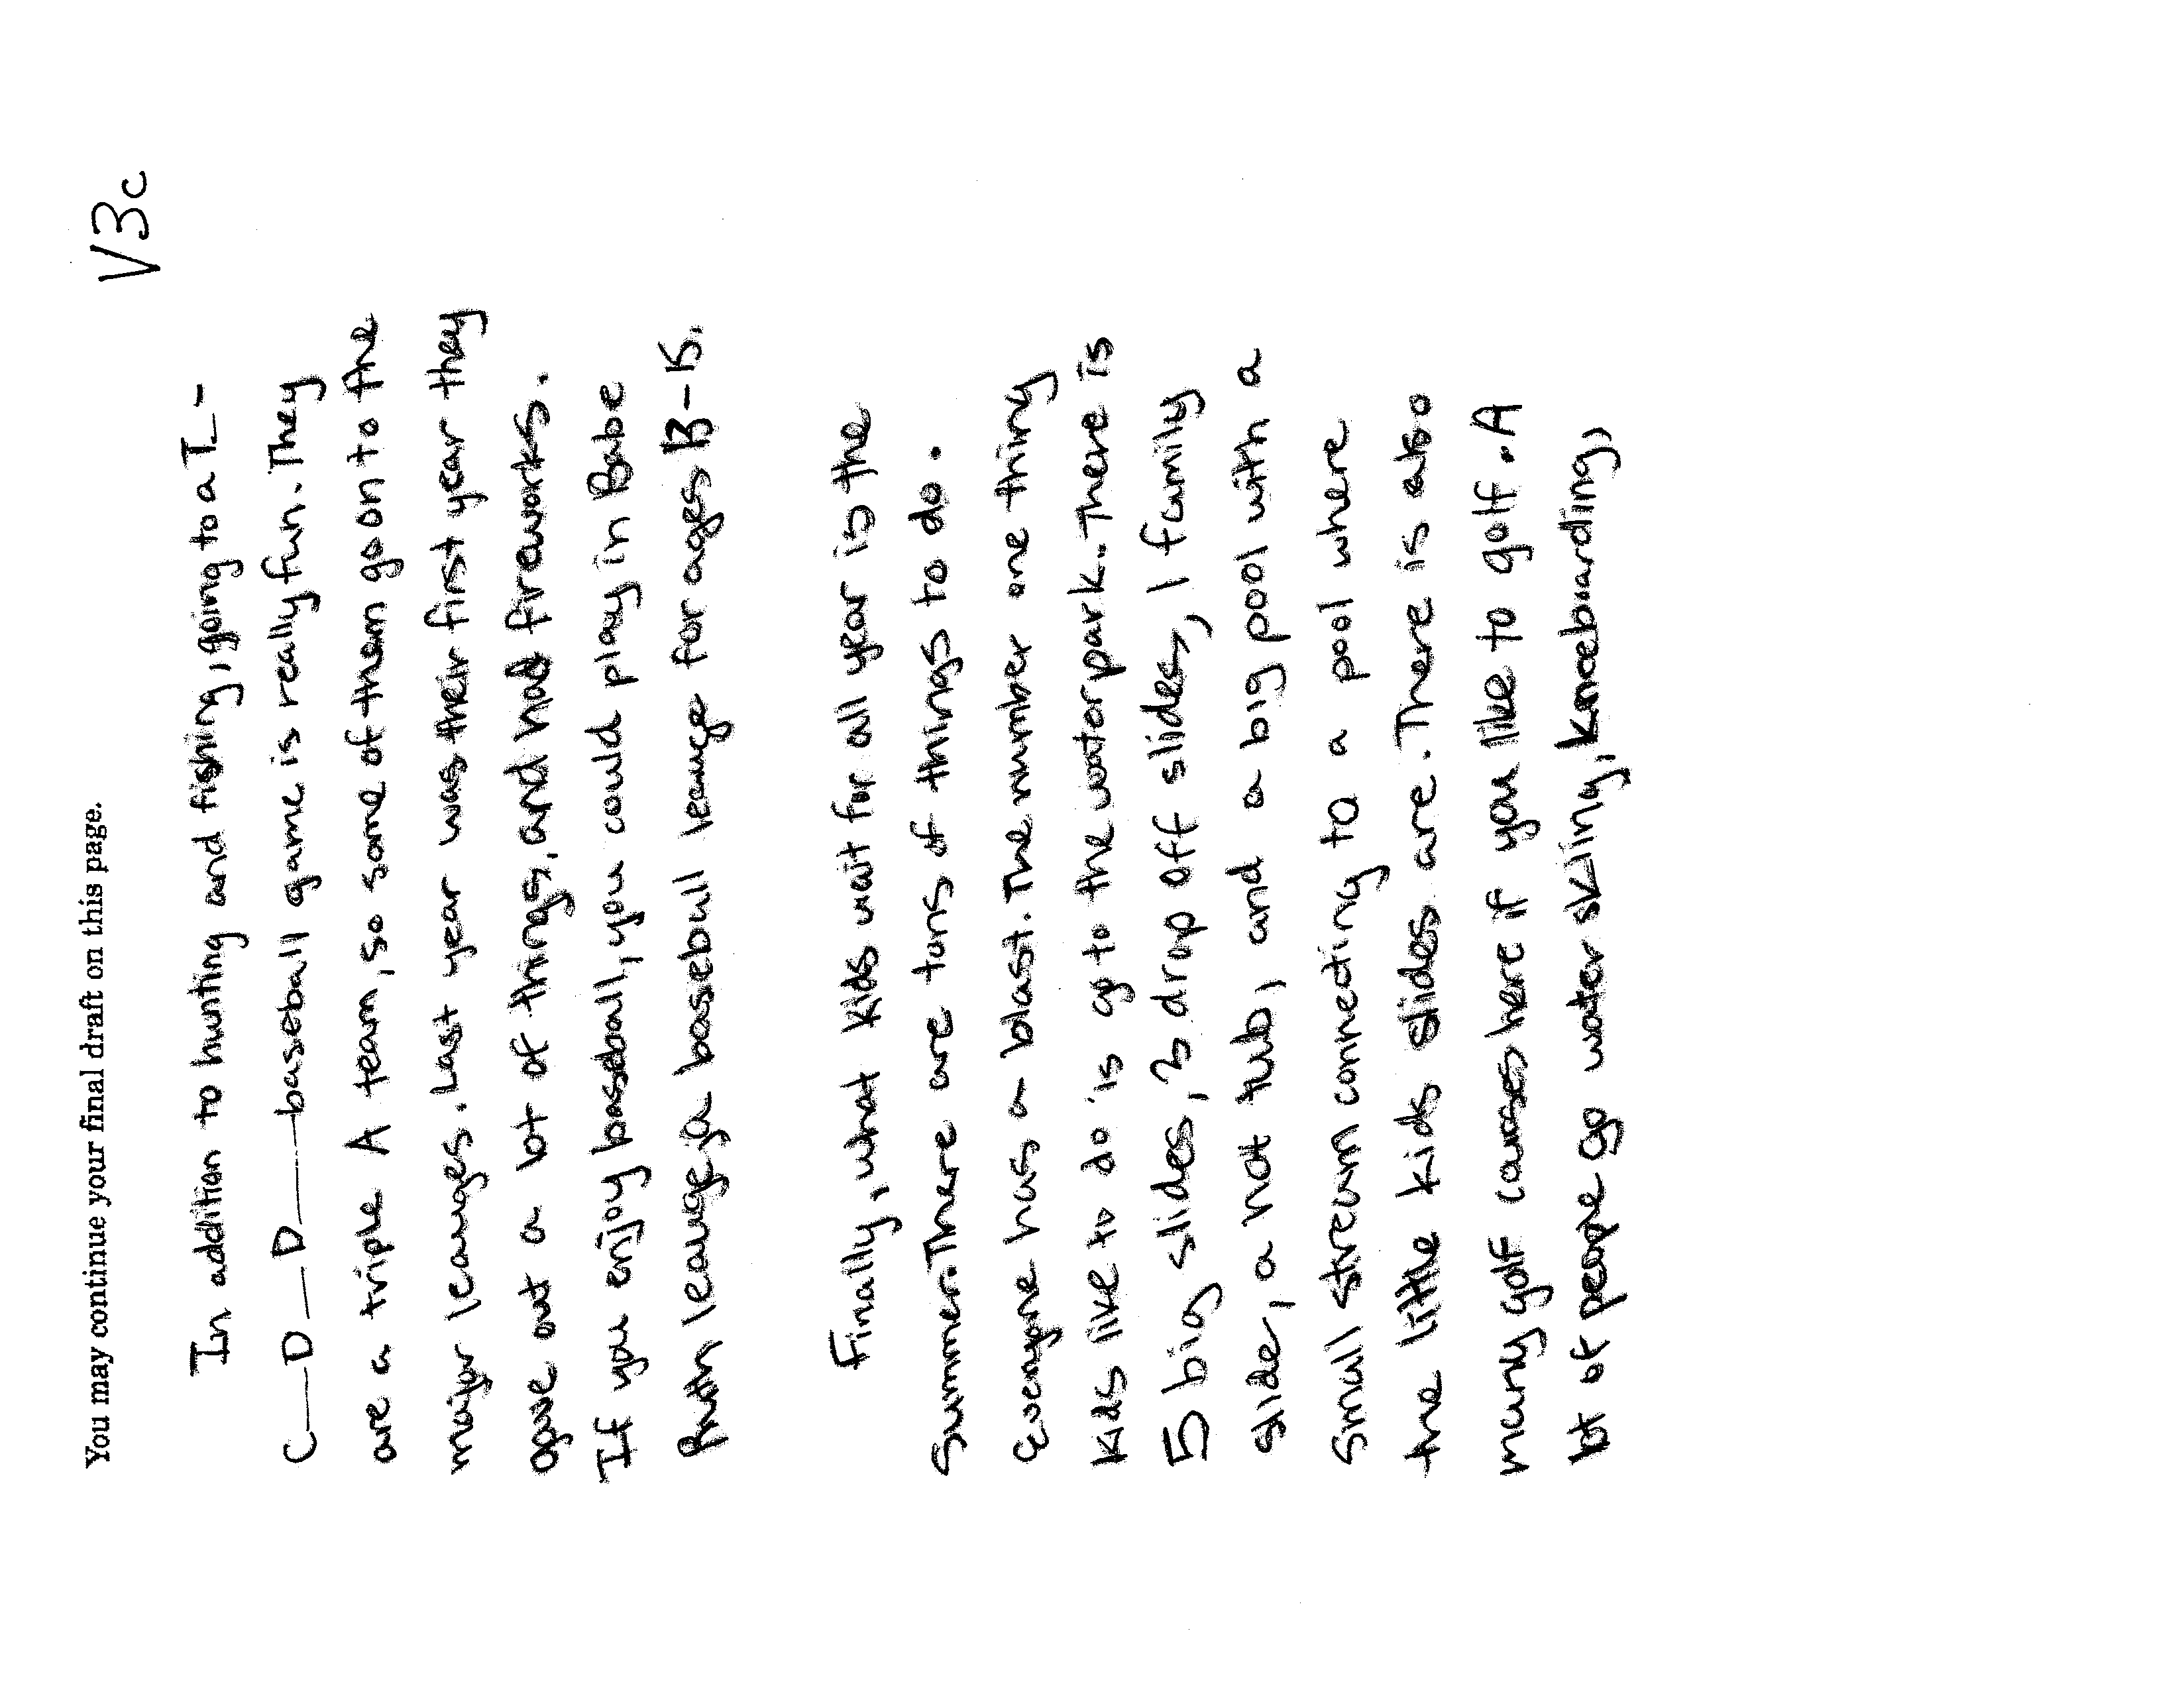 V3c
You may continue your final draft on this page.
In addition to hunting and fishing, going to a T-
C—D—D—baseball game is really fun. They
are a triple A team, so some of them go on to the
major leauges. Last year was their first year they
gave out a lot of things, and had fireworks.
If you enjoy baseball, you could play in Babe
Ruth leauge, a baseball leauge for ages 13-15.
Finally, what kids wait for all year is the
summer. There are tons of things to do.
Everyone has a blast. The number one thing
kids like to do is go to the waterpark. There is
5 big slides, 3 drop off slides, 1 family
slide, a hot tub, and a big pool with a
small stream connecting to a pool where
the little kids slides are. There is also
many golf causes here if you like to golf. A
lot of people go water skiing, kneeboarding,